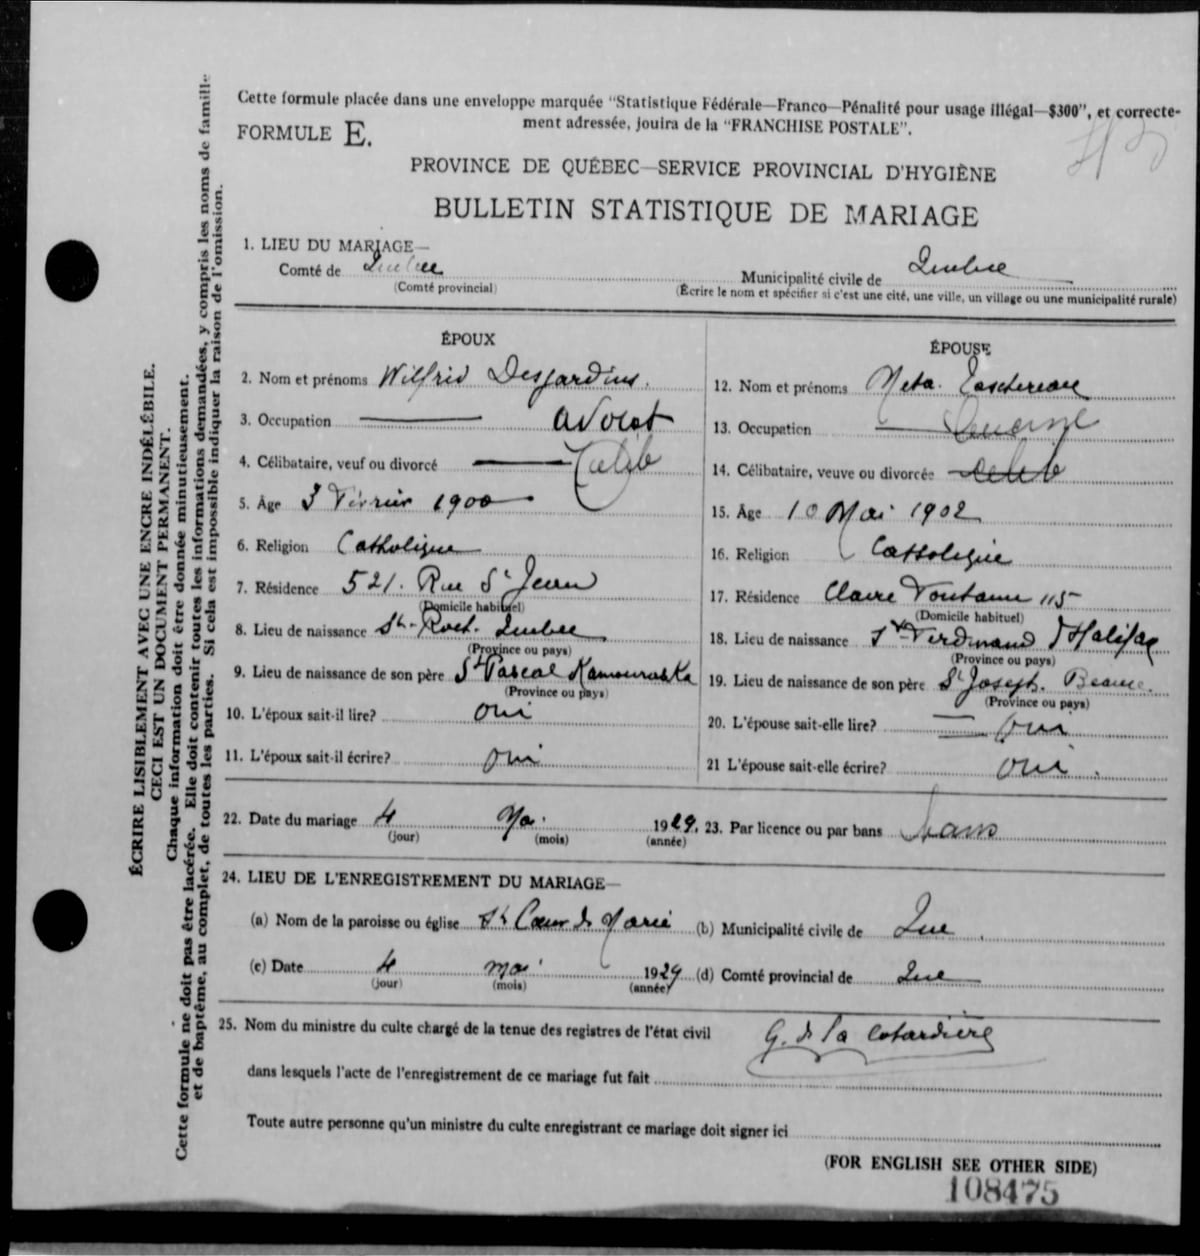 Cette formule placée dans une enveloppe marquée "Statistique Fédérale—Franco—Pénalité pour usage illégal—$300", et correcte-
ment adressée, jouira de la "FRANCHISE POSTALE".
FORMULE E.
PROVINCE DE QUÉBEC—SERVICE PROVINCIAL D'HYGIÈNE
BULLETIN STATISTIQUE DE MARIAGE
1. LIEU DU MARIAGE—
Comté de Quebec Municipalité civile de Quebec
(Comté provincial) (Écrire le nom et spécifier si c'est une cité, une ville, un village ou une municipalité rurale)
ÉPOUX
2. Nom et prénoms Wilfrid Desjardins.
3. Occupation avocat
4. Célibataire, veuf ou divorcé Célib
5. Âge 3 Février 1900
6. Religion Catholique
7. Résidence 521. Rue St Jean
(Domicile habituel)
8. Lieu de naissance St-Roch. Quebec
(Province ou pays)
9. Lieu de naissance de son père St Pascal Kamouraska
(Province ou pays)
10. L'époux sait-il lire? oui
11. L'époux sait-il écrire? oui
ÉPOUSE
12. Nom et prénoms Meta. Taschereau
13. Occupation
14. Célibataire, veuve ou divorcée Celib
15. Âge 10 Mai 1902
16. Religion Catholique
17. Résidence Claire Fontaine 115
(Domicile habituel)
18. Lieu de naissance St Ferdinand d'Halifax
(Province ou pays)
19. Lieu de naissance de son père St Joseph. Beauce.
(Province ou pays)
20. L'épouse sait-elle lire? oui
21 L'épouse sait-elle écrire? oui.
22. Date du mariage 4 Mai 1929. 23. Par licence ou par bans bans
(jour) (mois) (année)
24. LIEU DE L'ENREGISTREMENT DU MARIAGE—
(a) Nom de la paroisse ou église St Cœur de Marie (b) Municipalité civile de Que
(c) Date 4 mai 1929 (d) Comté provincial de Que
(jour) (mois) (année)
25. Nom du ministre du culte chargé de la tenue des registres de l'état civil G. de la Cotardière
dans lesquels l'acte de l'enregistrement de ce mariage fut fait
Toute autre personne qu'un ministre du culte enregistrant ce mariage doit signer ici
(FOR ENGLISH SEE OTHER SIDE)
108475
ÉCRIRE LISIBLEMENT AVEC UNE ENCRE INDÉLÉBILE.
CECI EST UN DOCUMENT PERMANENT.
Chaque information doit être donnée minutieusement.
Cette formule ne doit pas être lacérée. Elle doit contenir toutes les informations demandées, y compris les noms de famille
et de baptême, au complet, de toutes les parties. Si cela est impossible indiquer la raison de l'omission.